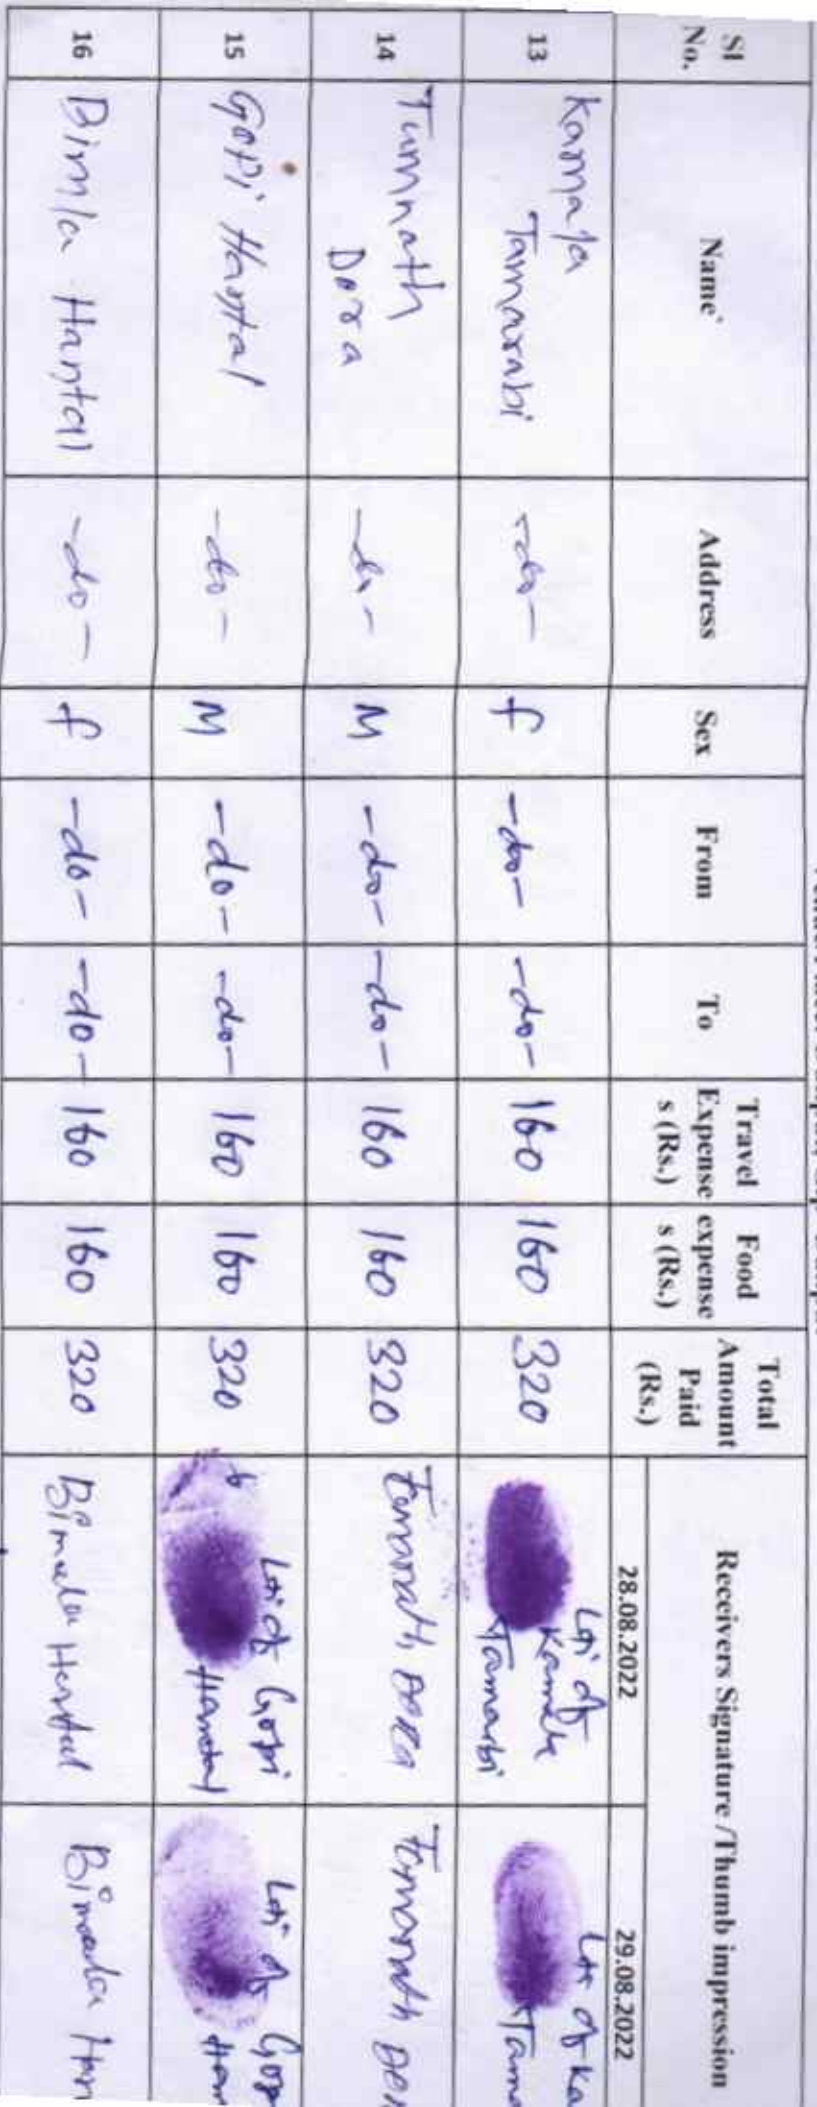 Sl No. Name Address Sex From To Travel Expense s (Rs.) Food expense s (Rs.) Total Amount Paid (Rs.) Receivers Signature /Thumb impression
28.08.2022 29.08.2022
13 Kamala Tamarabi -do- f -do- -do- 160 160 320 Lti of Kamala Tamarbi Lti of Ka Tama
14 Tumnath Dora -do- M -do- -do- 160 160 320 Tomanath Dora Tomanath
15 Gopi Hantal -do- M -do- -do- 160 160 320 Lti of Gopi Hantal Lti of Gop Han
16 Bimla Hantal -do- f -do- -do- 160 160 320 Bimala Hantal Bimala Han